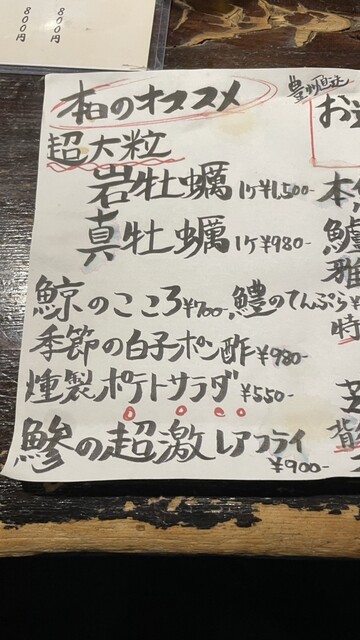 800円
800円
本日のオススメ
豊洲直送
超大粒
岩牡蠣 1ケ¥1,500-
真牡蠣 1ケ¥980-
鯨のこころ¥700-, 鱧のてんぷら¥
季節の白子ポン酢¥980-
燻製ポテトサラダ¥550-
鰺の超激レアフライ
¥900-
お
本
雅
時
芝